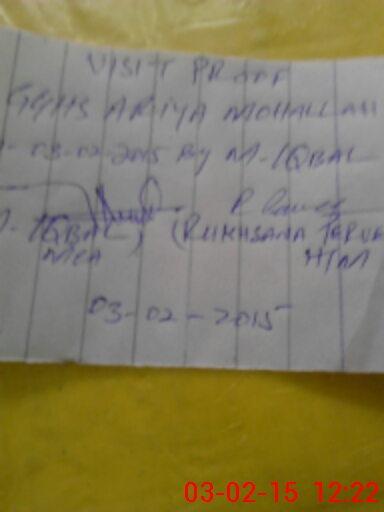 VISIT PROOF
GGHS ARIYA MOHALLAH
03-02-2015 By M-IQBAL
M-IQBAL) (RUKHSANA
MEA H/M
03-02-2015
03-02-15 12:22